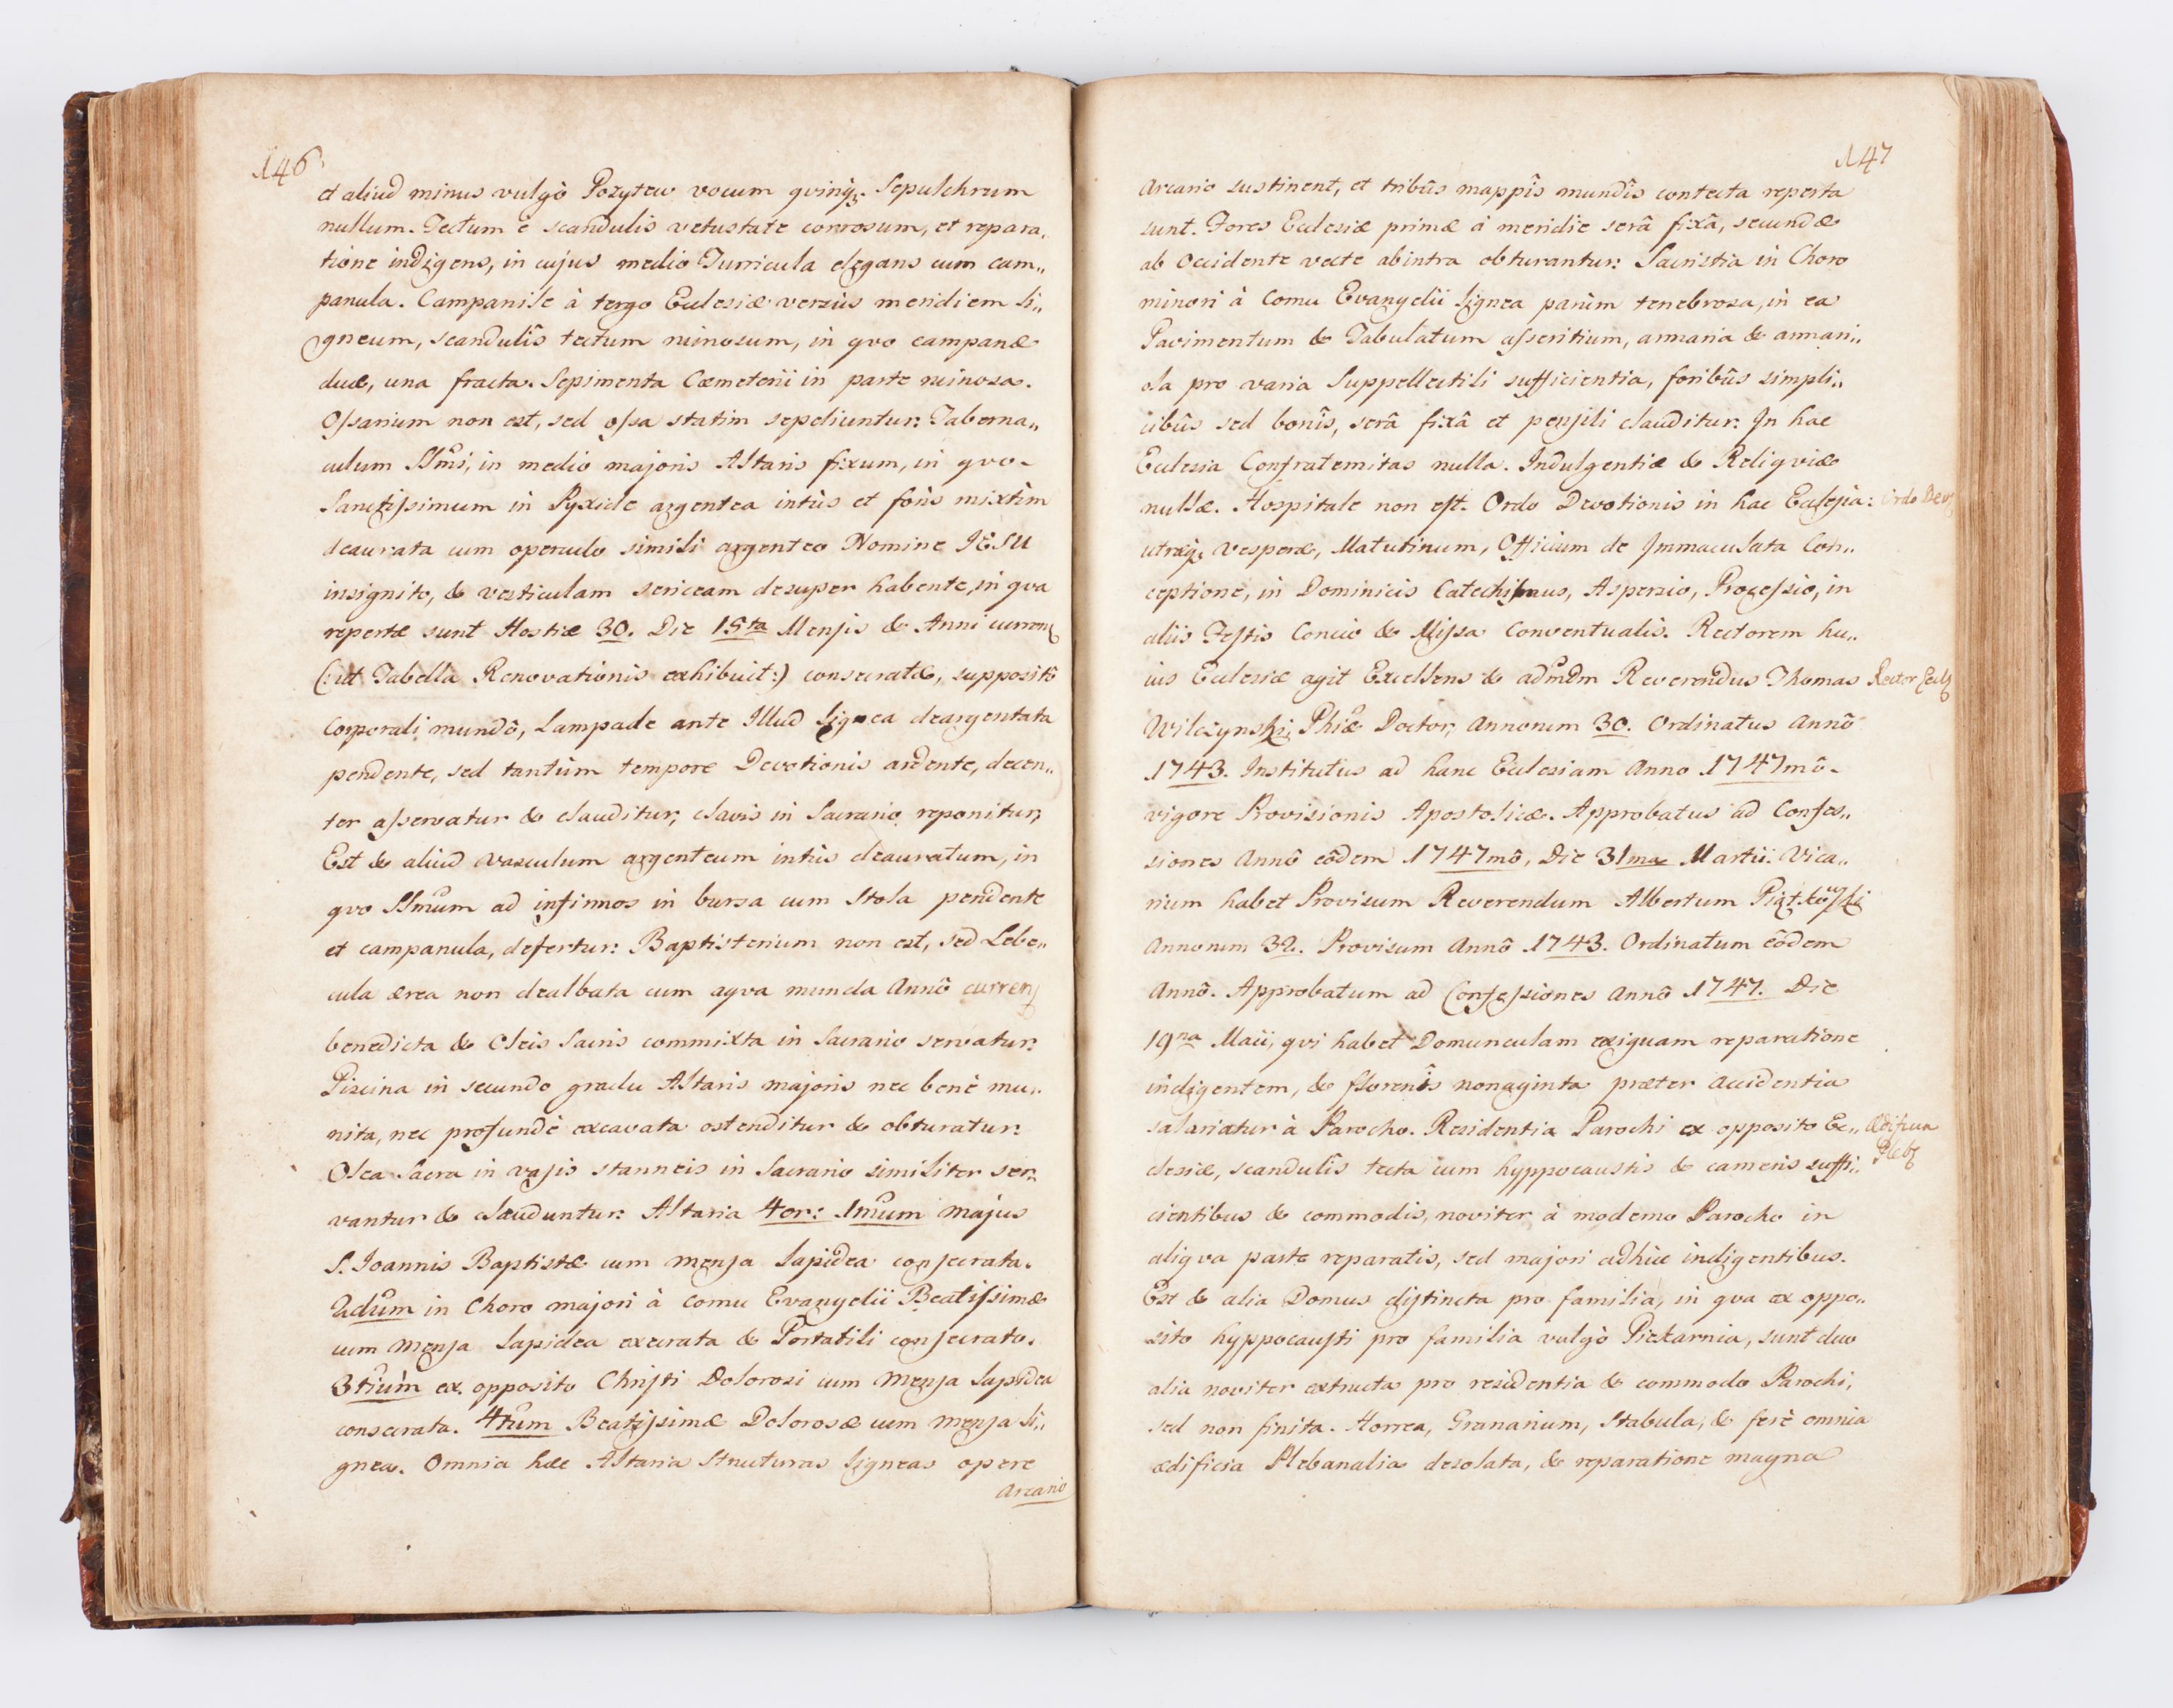 146
et aliud minus vulgò Pozytew vocum qvinq;. Sepulchrum
nullum. Tectum è scandulis vetustate corrosum, et repara„
tione indigens, in cujus medio Turricula elegans cum cam„
panula. Campanile à tergo Ecclesiæ versùs meridiem li„
gneum, scandulîs tectum ruinosum, in qvo campanæ
duæ, una fracta. Sepimenta Cæmeterii in parte ruinosa.
Ossarium non est, sed ossa statim sepeliuntur: Taberna„
culum SSmi, in medio majoris Altaris fixum, in qvo
Sanctissimum in Pyxide argentea intùs et foris mixtìm
deaurata cum operculo simili argenteo Nomine JESU
insignito, & vesticulam sericeam desuper habente, in qva
repertæ sunt Hostiæ 30. Die 15ta Mensis & Anni curren
(: ut Tabella Renovationis exhibuit:) consecratæ, suppositô
Corporali mundô, Lampade ante Illud lignea deargentata
pendente, sed tantùm tempore Devotionis ardente, decen„
ter asservatur & clauditur, clavis in Sacrario reponitur,
Est & aliud vasculum argenteum intùs deauratum, in
qvo SSmum ad infirmos in bursa cum Stola pendente
et campanula, defertur: Baptisterium non est, sed Lebe„
cula ærea non dealbata cum aqva munda Annô curren
benedicta & Oleis Sacris commixta in Sacrario servatur:
Piscina in secundo gradu Altaris majoris nec benè mu„
nita, nec profundè excavata ostenditur & obturatur:
Olea Sacra in vasis stanneis in Sacrario similiter ser„
vantur & clauduntur: Altaria 4or: 1mum majus
S. Joannis Baptistæ cum mensa lapidea consecrata.
2dum in Choro majori à Cornu Evangelii Beatissimæ
cum Mensa lapidea execrata & Portatili consecrato.
3tium ex opposito Christi Dolorosi cum Mensa lapidea
consecrata. 4tum Beatissimæ Dolorosæ cum mensa li„
gnea. Omnia hæc Altaria Structuras ligneas opere
Arcario
147
Arcario sustinent, et tribûs mappîs mundîs contecta reperta
sunt. Fores Ecclesiæ primæ à meridie serâ fixâ, secundæ
ab Occidente vecte abintra obturantur: Sacristia in Choro
minori à Cornu Evangelii lignea parùm tenebrosa, in ea
Pavimentum & Tabulatum asseritium, armaria & armari„
ola pro varia Suppellectili sufficientia, foribûs simpli„
cibûs sed bonîs, serâ fixâ et pensili clauditur: In hac
Ecclesia Confraternitas nulla. Indulgentiæ & Reliqviæ
nullæ. Hospitale non est. Ordo Devotionis in hac Ecclesia: Ordo Dev
utræq; Vesperæ, Matutinum, Officium de Immaculata Con„
ceptione, in Dominicis Catechismus, Aspersio, Processio, in
aliis Festis Concio & Missa Conventualis. Rectorem hu„
ius Ecclesiæ agit Excellens & admdm Reverendus Thomas Rector Eccl
Wilczynski, Phiæ Doctor, Annorum 30. Ordinatus Annô
1743. Institutus ad hanc Ecclesiam Anno 1747mô
vigore Provisionis Apostolicæ. Approbatus ad Confes„
siones Annô eôdem 1747mô, Die 31ma Martii: Vica„
rium habet Provisum Reverendum Albertum Piątkowski
Annorum 32. Provisum Annô 1743. Ordinatum eôdem
Annô. Approbatum ad Confessiones Annô 1747. Die
19na Maii, qvi habet Domunculam exiguam reparatione
indigentem, & florenîs nonaginta præter accidentia
salariatur à Parocho. Residentia Parochi ex opposito Ec„ Ædificia
Pleb
clesiæ, scandulîs tecta cum hyppocaustis & cameris suffi„
cientibus & commodis, noviter à moderno Parocho in
aliqva parte reparatis, sed majori adhùc indigentibus.
Est & alia Domus distincta pro familia, in qva ex oppo„
sito hyppocausti pro familia vulgò Piekarnia, sunt duo
alia noviter extructa pro residentia & commodo Parochi,
sed non finita. Horrea, Granarium, Stabula, & ferè omnia
ædificia Plebanalia desolata, & reparatione magna